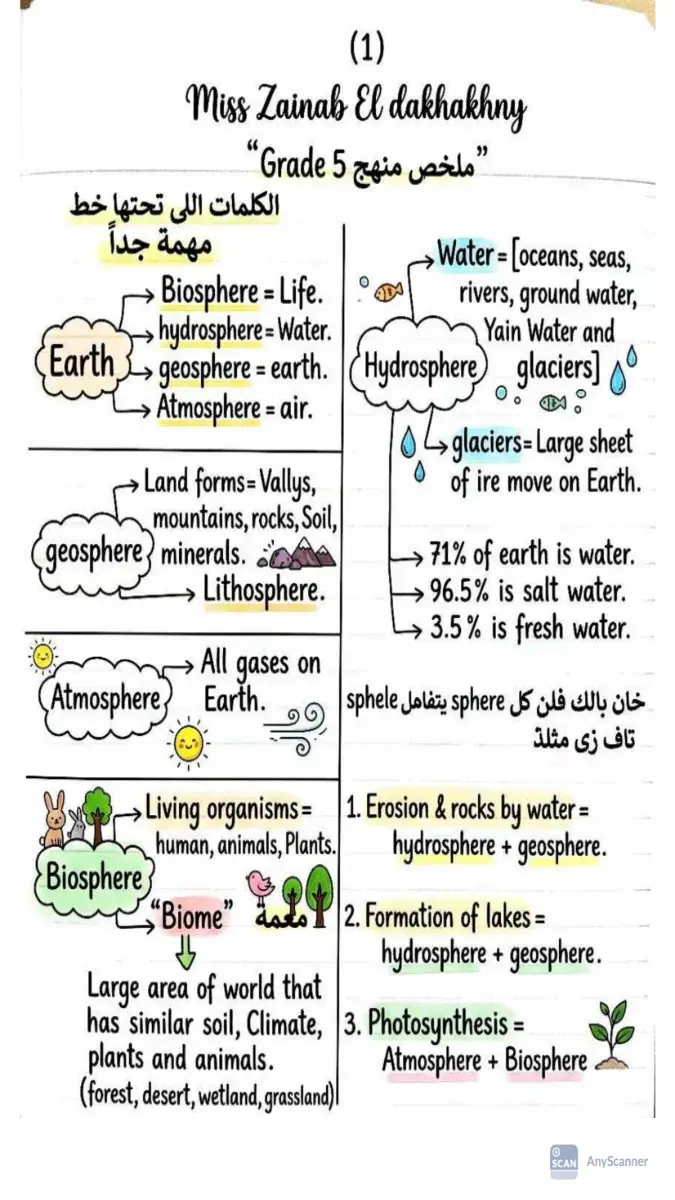 (1)
Miss Zainab El dakhakhny
“Grade 5 ملخص منهج”
الكلمات اللى تحتها خط
مهمة جداً
Earth
Biosphere = Life.
hydrosphere = Water.
geosphere = earth.
Atmosphere = air.
geosphere
Land forms = Vallys,
mountains, rocks, Soil,
minerals.
Lithosphere.
Atmosphere
All gases on
Earth.
Biosphere
Living organisms =
human, animals, Plants.
“Biome” معمة
Large area of world that
has similar soil, Climate,
plants and animals.
(forest, desert, wetland, grassland)
Hydrosphere
Water = [oceans, seas,
rivers, ground water,
Yain Water and
glaciers]
glaciers = Large sheet
of ire move on Earth.
71% of earth is water.
96.5% is salt water.
3.5% is fresh water.
خان بالك فلن كل sphere يتفامل sphele
تاف زى مثلذ
1. Erosion & rocks by water =
hydrosphere + geosphere.
2. Formation of lakes =
hydrosphere + geosphere.
3. Photosynthesis =
Atmosphere + Biosphere
SCAN AnyScanner